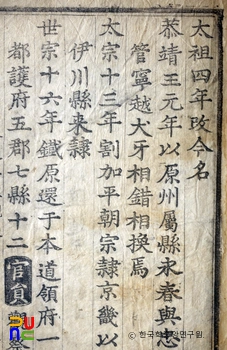 太祖四年改今名
恭靖王元年以原州屬縣永春與忠
管寧越犬牙相錯相換焉
太宗十三年割加平朝宗隷京畿以
伊川縣来隷
世宗十六年鐵原還于本道領府一
都護府五郡七縣十二官員觀
© 한국학중앙연구원